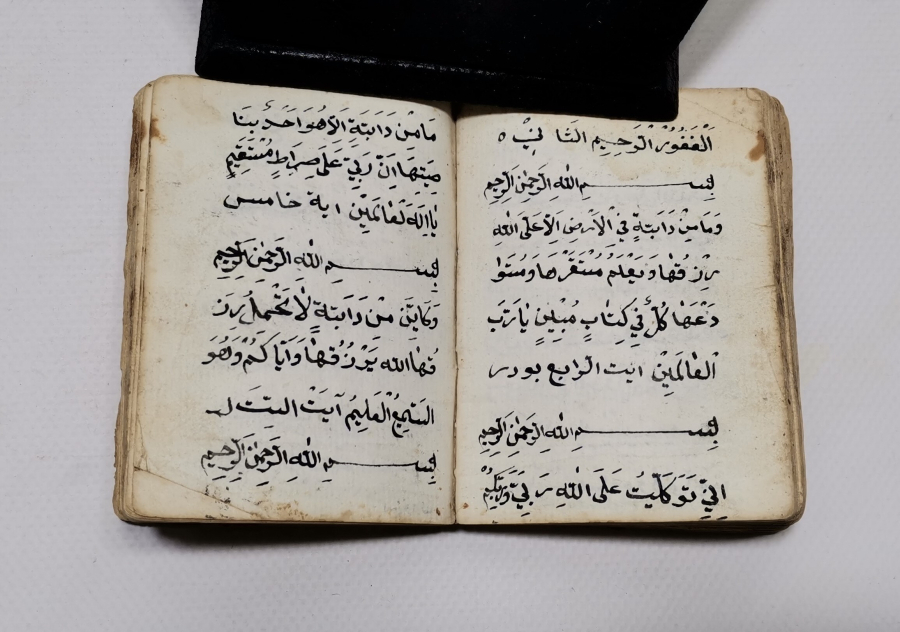 الْغَفُورُ الْرَحِيمِ الثَانِيْ ٥
بِسْمِ اللهِ الرَّحْمٰنِ الرَّحِيمِ
وَمَامِنْ دَابَّةٍ فِيْ الْاَرْضِ اِلاَّعَلَى اللهِ
رِزْقُهَا وَيَعْلَمُ مُسْتَقَرَّهَا وَمُسْتَوْ
دَعَهَا كُلٌّ فِيْ كِتَابٍ مُبِيْنٍ يَارَبَّ
الْعَالَمِيْنَ ايت الرابع بودر
بِسْمِ اللهِ الرَّحْمٰنِ الرَّحِيمِ
اِنِّيْ تَوَكَّلْتُ عَلَى اللهِ رَبِّيْ وَرَبِّكُمْ
مَامِنْ دَابَّةٍ اِلاَّهُوَ اَخَذَ بِنَا
صِيَتِهَا اِنَّ رَبِّيْ عَلَى صِرَاطٍ مُسْتَقِيْمٍ
يَااِلَهَ لْعَالَمِيْنَ اية خامس
بِسْمِ اللهِ الرَّحْمٰنِ الرَّحِيمِ
وَكَايَنْ مِنْ دَابَّةٍ لَا تَحْمِلُ رِزْ
قُهَا اللهُ يَرْزُقُهَا وَاَيَّاكُمْ وَهُوَ
السَّمِيْعُ الْعَلِيْمُ آيَتْ
بِسْمِ اللهِ الرَّحْمٰنِ الرَّحِيمِ